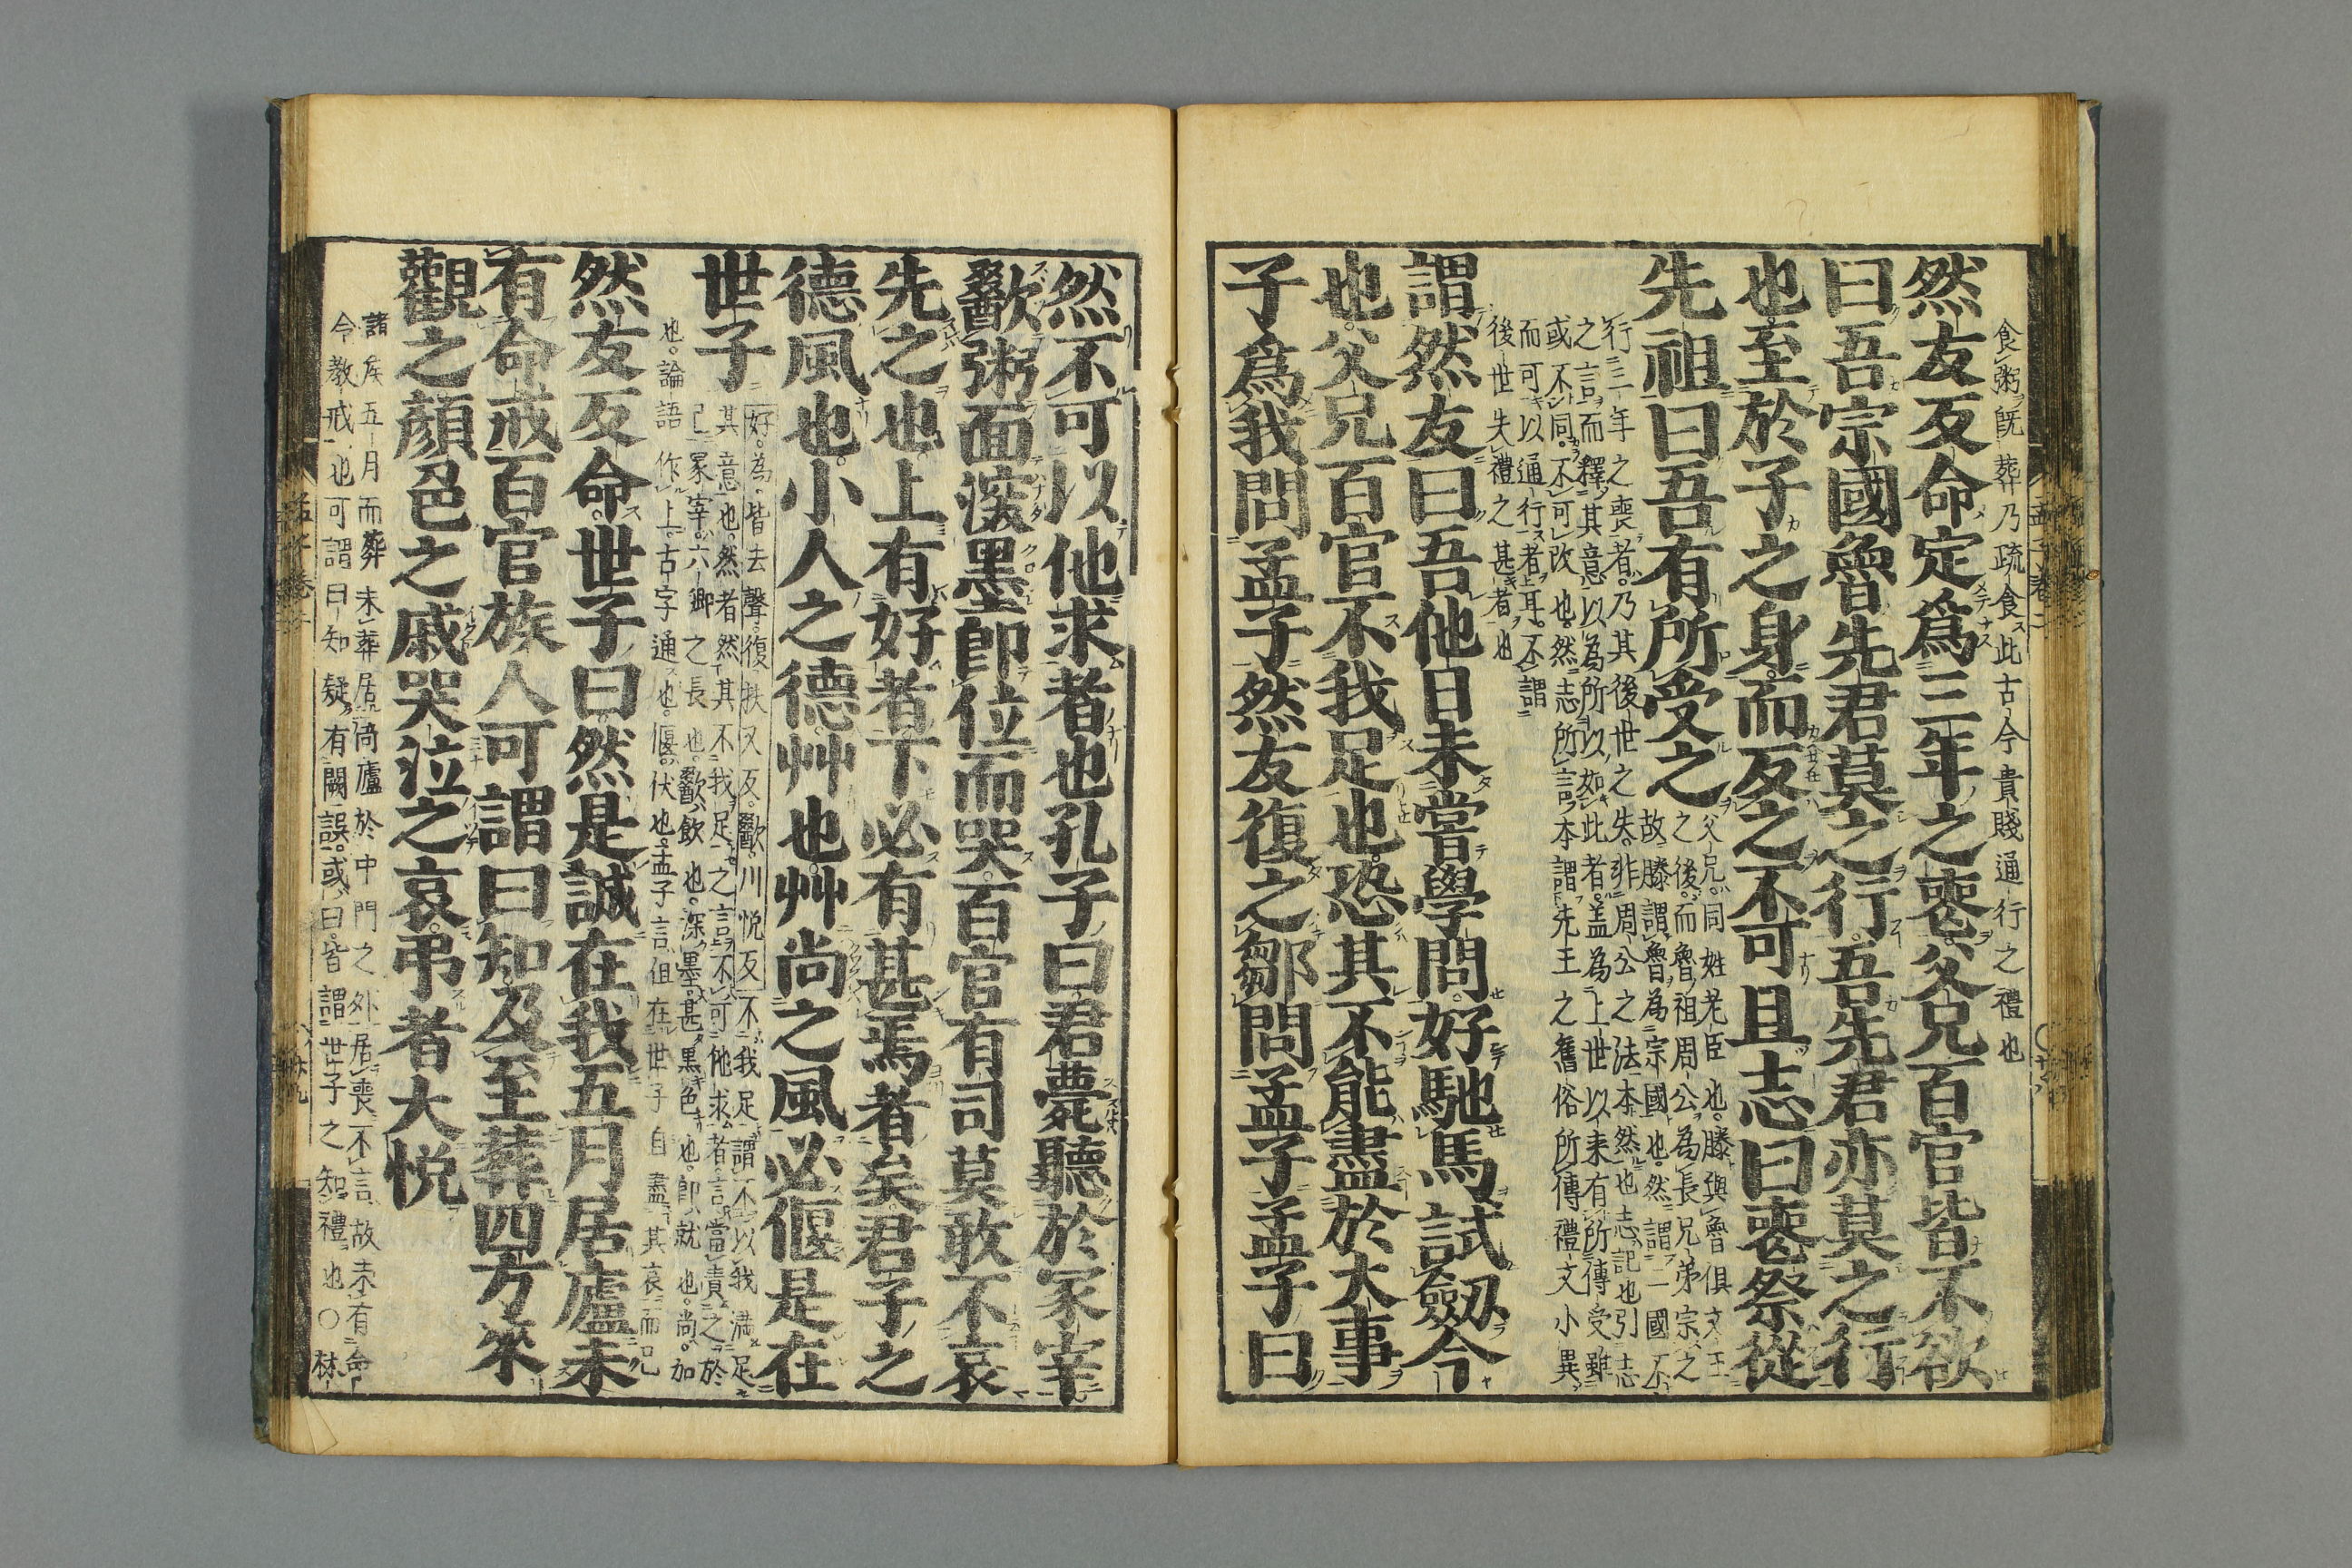 食粥既葬乃疏食此古今貴賤通行之禮也
然友反命定爲三年之喪父兄百官皆不欲
曰吾宗國魯先君莫之行吾先君亦莫之行
也至於子之身而反之不可且志曰喪祭從
先祖曰吾有所受之
父兄同姓老臣也滕與魯俱文王
之後而魯祖周公爲長兄弟宗之
故滕謂魯爲宗國也然謂二國不
行三年之喪者乃其後世之失非周公之法本然也志記也引志
之言而釋其意以爲所以如此者蓋爲上世以來有所傳受雖
或不同不可改也然志所言本謂先王之舊俗所傳禮文小異
而可以通行者耳不謂
後世失禮之甚者也
謂然友曰吾他日未嘗學問好馳馬試劒今
也父兄百官不我足也恐其不能盡於大事
子爲我問孟子然友復之鄒問孟子孟子曰
然不可以他求者也孔子曰君薨聽於冢宰
歠粥面深墨卽位而哭百官有司莫敢不哀
先之也上有好者下必有甚焉者矣君子之
德風也小人之德艸也艸尚之風必偃是在
世子
好爲皆去聲復扶又反歠川悦反不我足謂不以我滿足
其意也然者然其不我足之言不可他求者言當責之於
己冢宰六卿之長也歠飲也深墨甚黑色也卽就也尚加
也論語作上古字通也偃伏也孟子言但在世子自盡其哀而已
然友反命世子曰然是誠在我五月居廬未
有命戒百官族人可謂曰知及至葬四方來
觀之顔色之戚哭泣之哀弔者大悦
諸矦五月而葬未葬居倚廬於中門之外居喪不言故未有命
令教戒也可謂曰知疑有闕誤或曰皆謂世子之知禮也〇林